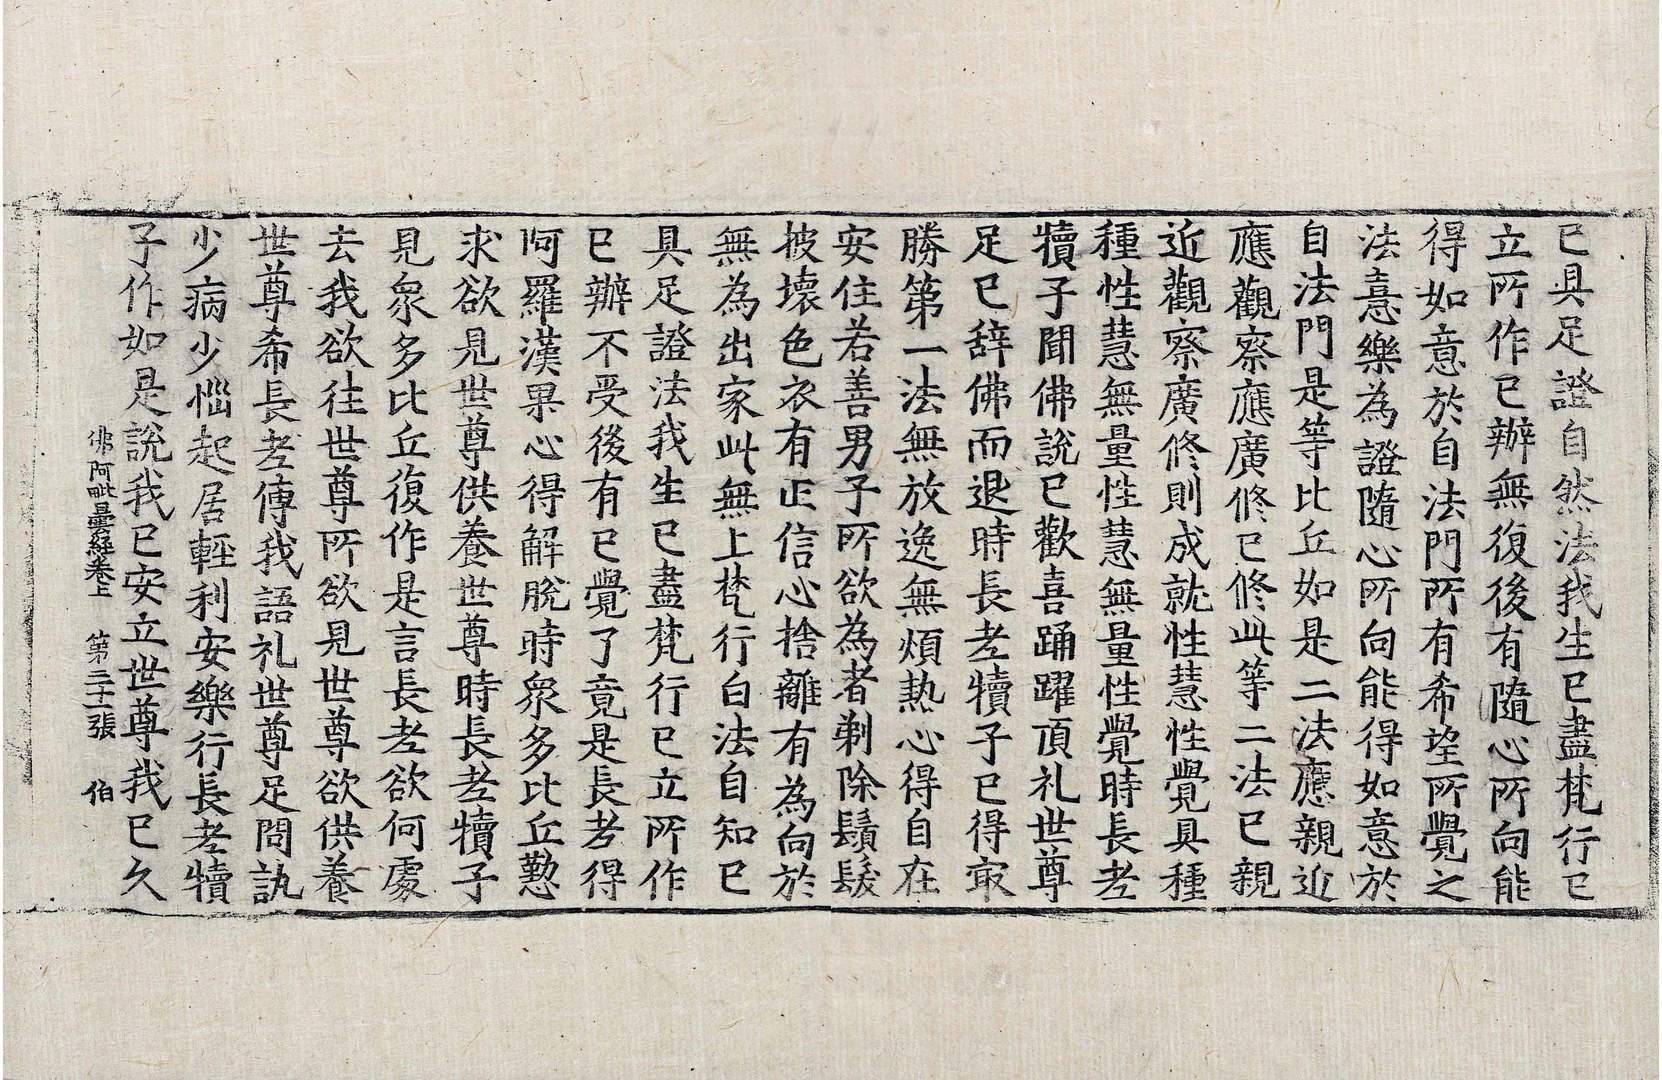 已具足證自然法我生已盡梵行已
立所作已辦無復後有隨心所向能
得如意於自法門所有希望所覺之
法憙樂為證隨心所向能得如意於
自法門是等比丘如是二法應親近
應觀察應廣修已修此等二法已親
近觀察廣修則成就性慧性覺具種
種性慧無量性慧無量性覺時長老
犢子聞佛說已歡喜踊躍頂礼世尊
足已辞佛而退時長老犢子已得㝡
勝第一法無放逸無煩熱心得自在
安住若善男子所欲為者剃除鬚髮
披壞色衣有正信心捨離有為向於
無為出家此無上梵行白法自知已
具足證法我生已盡梵行已立所作
已辦不受後有已覺了竟是長老得
阿羅漢果心得解脫時衆多比丘懃
求欲見世尊供養世尊時長老犢子
見衆多比丘復作是言長老欲何處
去我欲往世尊所欲見世尊欲供養
世尊希長老傳我語礼世尊足問訊
少病少惱起居輕利安樂行長老犢
子作如是說我已安立世尊我已久
佛阿毗曇經卷上 第三十一張 伯